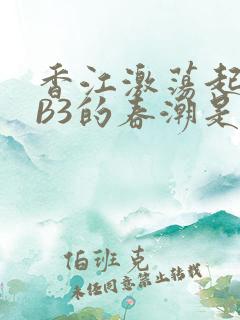 香江激荡起
B3的春潮是
伯班克
未经同意禁止转载